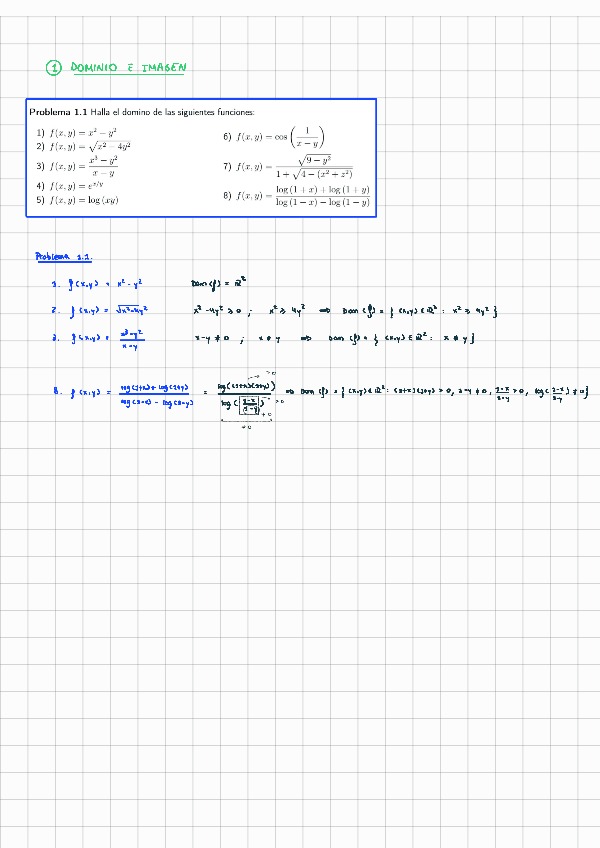 ① DOMINIO E IMAGEN
Problema 1.1 Halla el domino de las siguientes funciones:
1) f(x, y) = x² − y²
2) f(x, y) = √(x² − 4y²)
3) f(x, y) = (x³ − y²)/(x − y)
4) f(x, y) = e^(x/y)
5) f(x, y) = log (xy)
6) f(x, y) = cos (1/(x − y))
7) f(x, y) = √(9 − y²)/(1 + √(4 − (x² + z²)))
8) f(x, y) = (log (1 + x) + log (1 + y))/(log (1 − x) − log (1 − y))
Problema 1.1.
1. f(x,y) = x² - y² Dom (f) = ℝ²
2. f(x,y) = √(x²-4y²) x² - 4y² ≥ 0 ; x² ≥ 4y² ⇒ Dom (f) = { (x,y) ∈ ℝ² : x² ≥ 4y² }
3. f(x,y) = (x³-y²)/(x-y) x-y ≠ 0 ; x ≠ y ⇒ Dom (f) = { (x,y) ∈ ℝ² : x ≠ y }
8. f(x,y) = (log(1+x)+log(1+y))/(log(1-x) - log(1-y)) = log((1+x)(1+y))/log((1-x)/(1-y)) ⇒ Dom (f) = { (x,y) ∈ ℝ² : (1+x)(1+y) > 0, 1-y ≠ 0, (1-x)/(1-y) > 0, log((1-x)/(1-y)) ≠ 0}